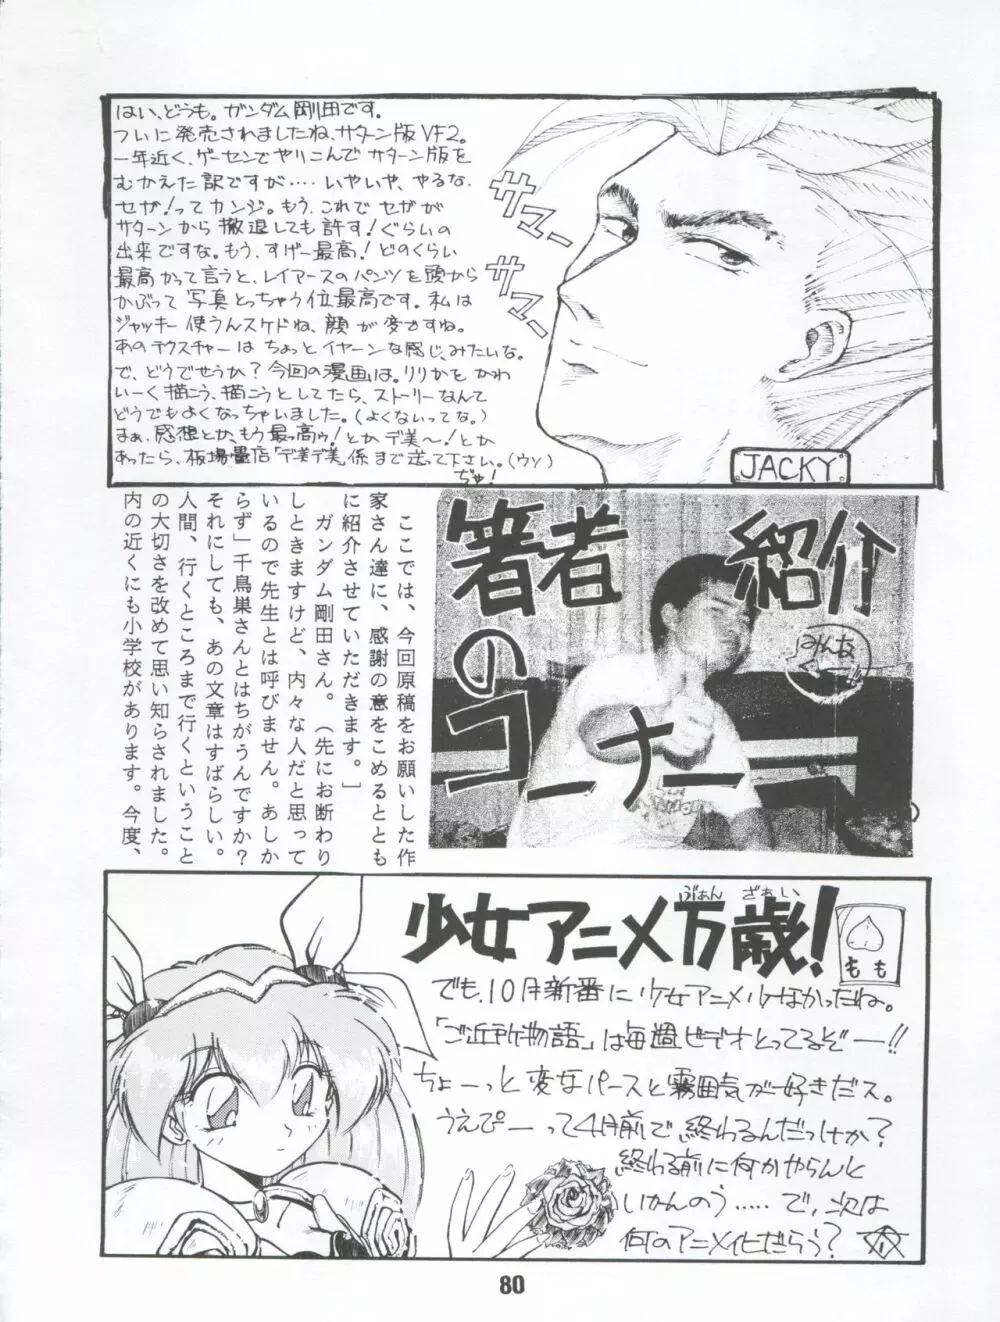 はい、どうも。ガンダム剛田です。
ついに発売されましたね、サターン版VF2。
一年近く、ゲーセンでやりこんでサターン版を
むかえた訳ですが‥‥いやいや、やるな、
セガ!ってカンジ。もう、これでセガが
サターンから撤退しても許す!ぐらいの
出来ですな。もう、すげー最高!どのくらい
最高かって言うと、レイアースのパンツを頭から
かぶって写真とっちゃう位最高です。私は
ジャッキー使うんスケドね、顔が変ですね。
あのテクスチャーはちょっとイヤーンな感じ、みたいな。
で、どうでせうか?今回の漫画は。リリカをかわ
いーく描こう、描こうとしてたら、ストーリーなんて
どうでもよくなっちゃいました。(よくないってな。)
まぁ、感想とか、もう最っ高ゥ!とかデ美〜!とか
あったら、板場量信「デ美デ美」係まで送って下さい。(ウソ)
ぢゃ!
サマー
サマー
JACKY
ここでは、今回原稿をお願いした作
家さん達に、感謝の意をこめるととも
に紹介させていただきます。]
ガンダム剛田さん。(先にお断わり
しときますけど、内々な人だと思って
いるので先生とは呼びません。あしか
らず」千鳥巣さんとはちがうんですか?
それにしても、あの文章はすばらしい。
人間、行くところまで行くということ
の大切さを改めて思い知らされました。
内の近くにも小学校があります。今度、
著者紹介
のコーナー
みんな
少女アニメ万歳!
ぶぁん ざぁい
もも
でも、10月新番に少女アニメ少なかっただね。
「ご近所物語」は毎週ビデオとってるぞー!!
ちょーっと変なパースと雰囲気が好きだス。
うえぴーって4月前で終わるんだっけか?
終わる前に何かやらんと
いかんのう‥‥‥で、次は
何のアニメ化だろう?
80